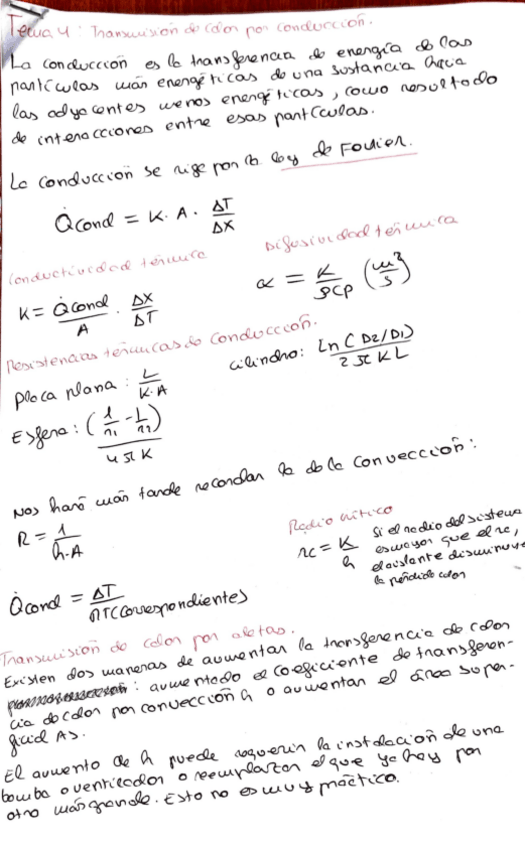 Tema 4: Transmisión de calor por conducción.
La conducción es la transferencia de energía de las
partículas más energéticas de una sustancia hacia
las adyacentes menos energéticas, como resultado
de interacciones entre esas partículas.
La conducción se rige por la ley de Fourier.
Q̇cond = K · A · ΔT/ΔX
Conductividad térmica
K = Q̇cond/A · ΔX/ΔT
Difusividad térmica
α = K/ρcp (m²/s)
Resistencias térmicas de conducción.
Placa plana: L/K·A
cilindro: Ln(D2/D1)/2πKL
Esfera: (1/r1 - 1/r2)/4πK
Nos hará más tarde recordar la de la convección:
R = 1/h·A
Radio crítico
rc = K/h
Si el radio del sistema
es mayor que el rc,
el aislante disminuye
la pérdida calor
Q̇cond = ΔT/RT(correspondientes)
Transmisión de calor por aletas.
Existen dos maneras de aumentar la transferencia de calor
: aumentado el coeficiente de transferen-
cia de calor por convección h o aumentar el área super-
ficial AS.
El aumento de h puede requerir la instalación de una
bomba o ventilador o reemplazar el que ya hay por
otro más grande. Esto no es muy práctico.